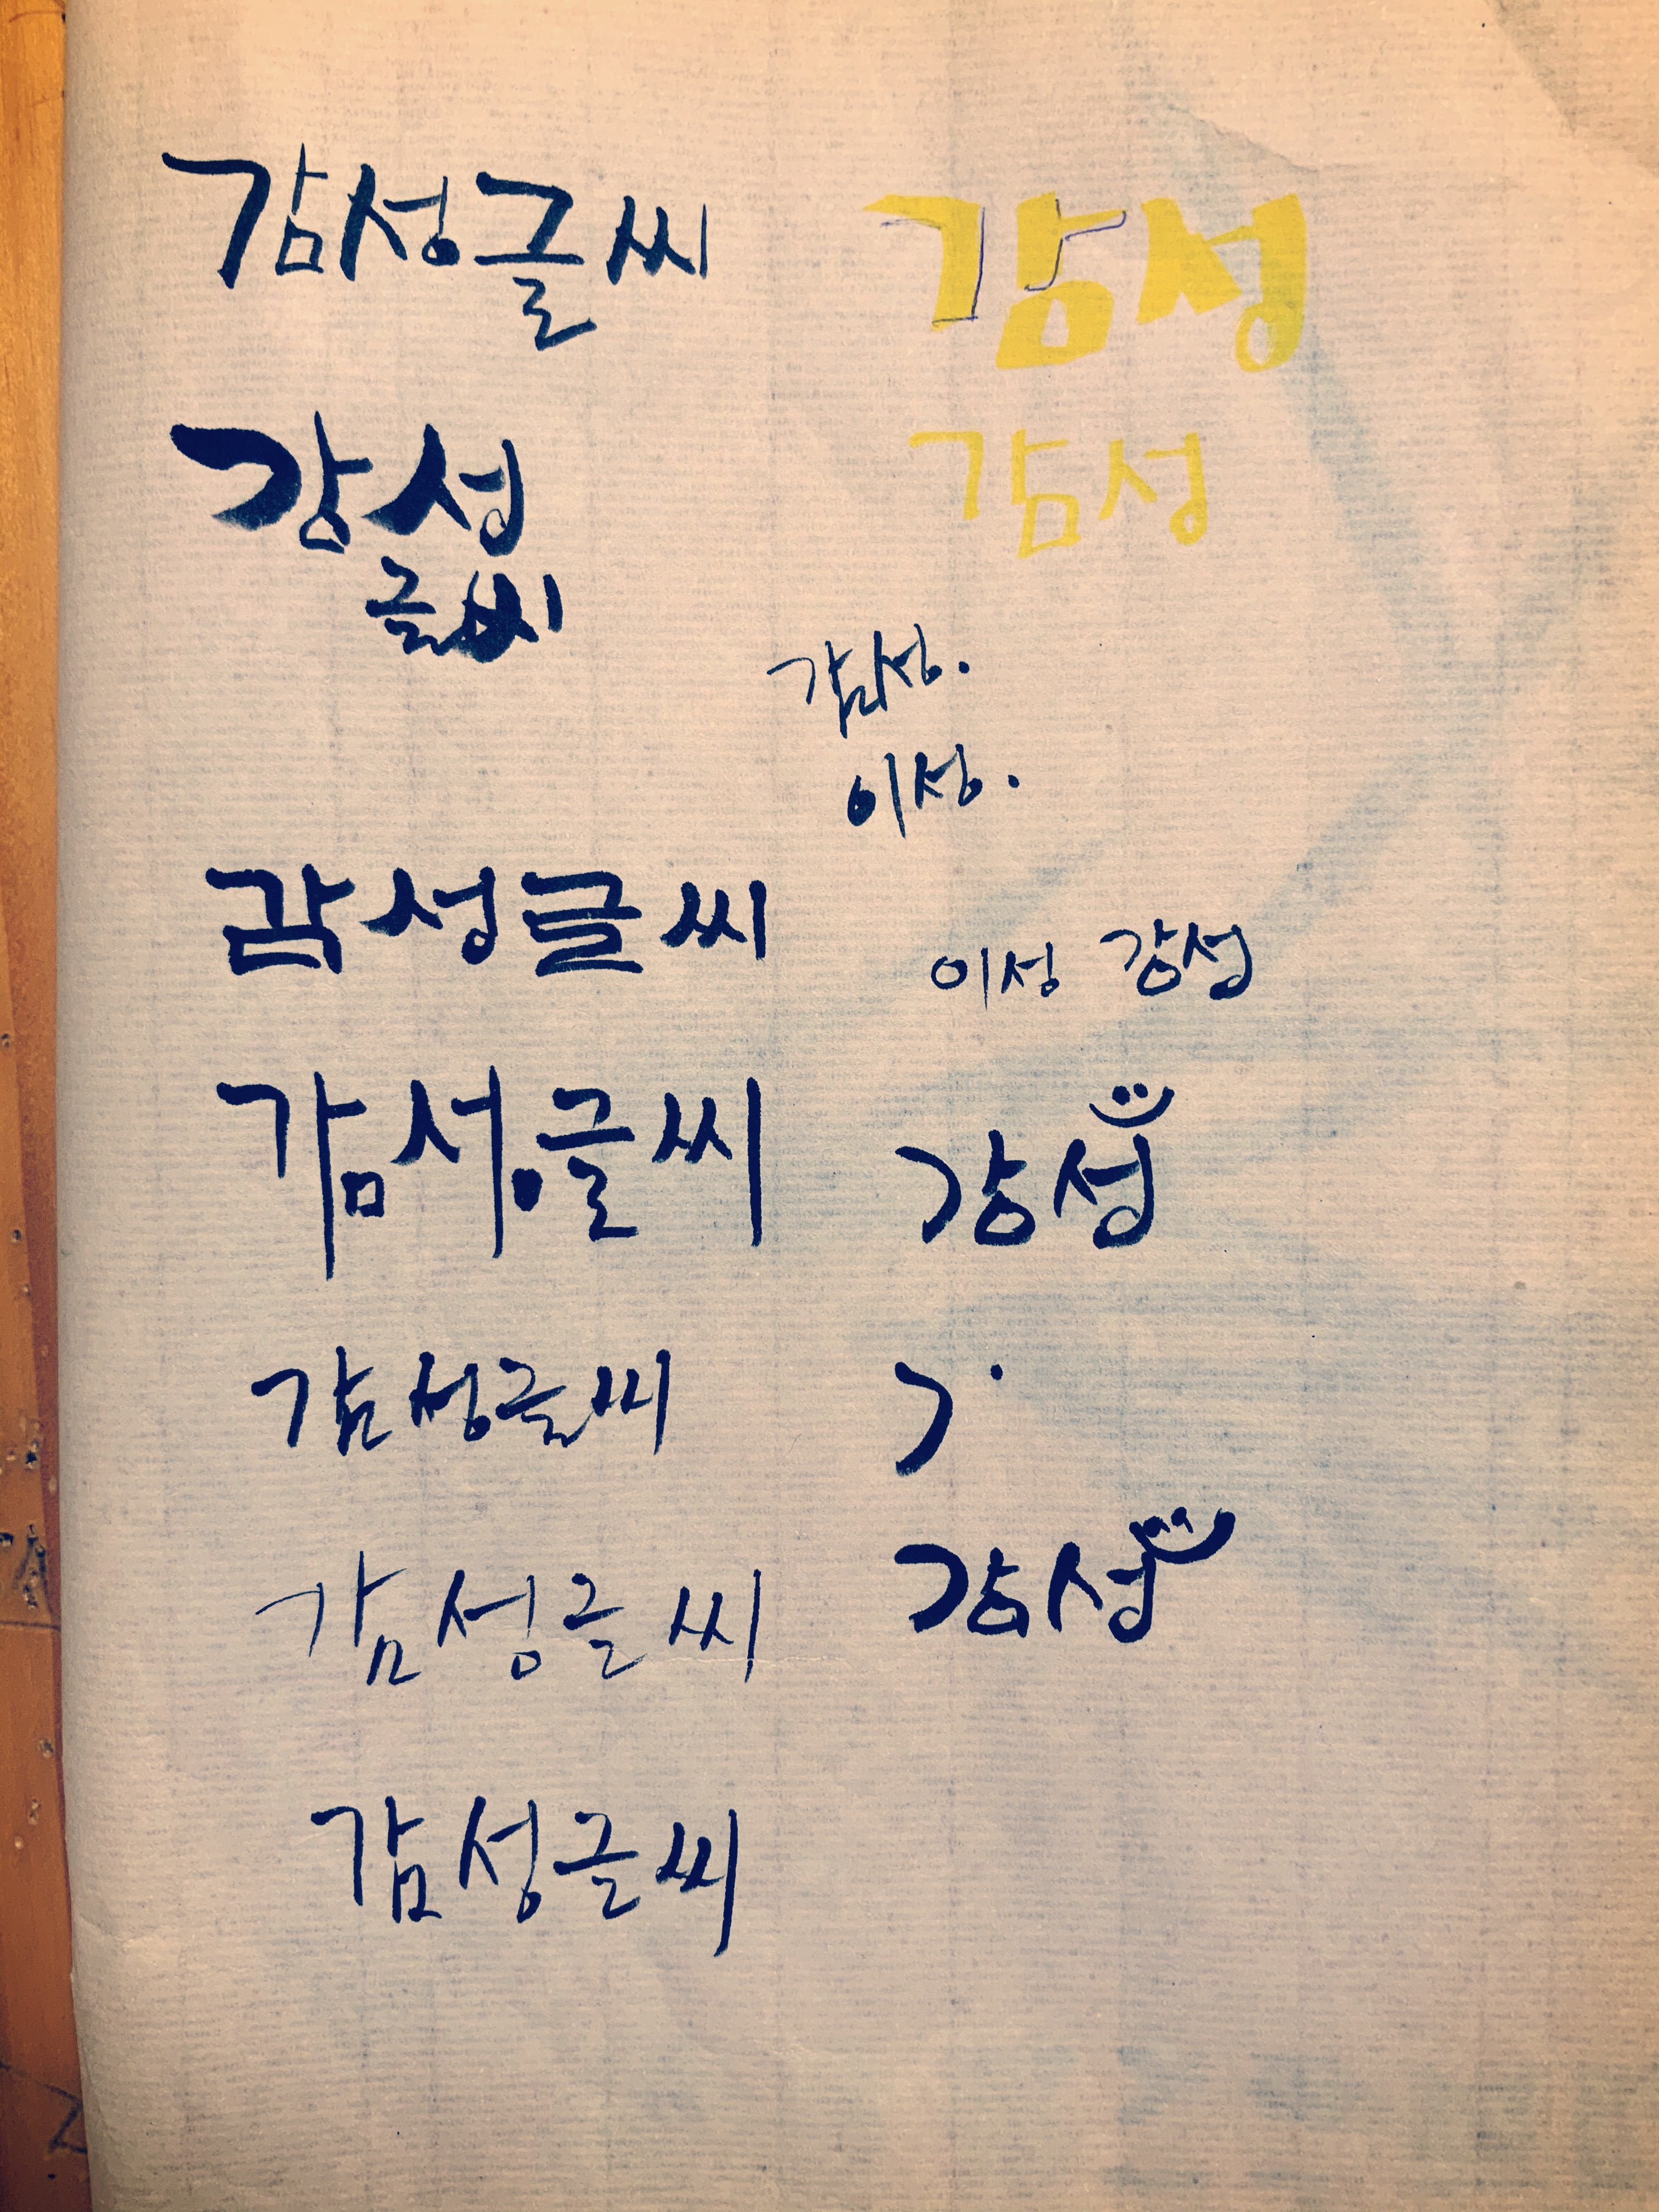 감성글씨
감성
감성
글씨
감성
감성.
이성.
감성글씨
이성 감성
감성글씨
감성
감성글씨
감성
감성글씨
감성글씨